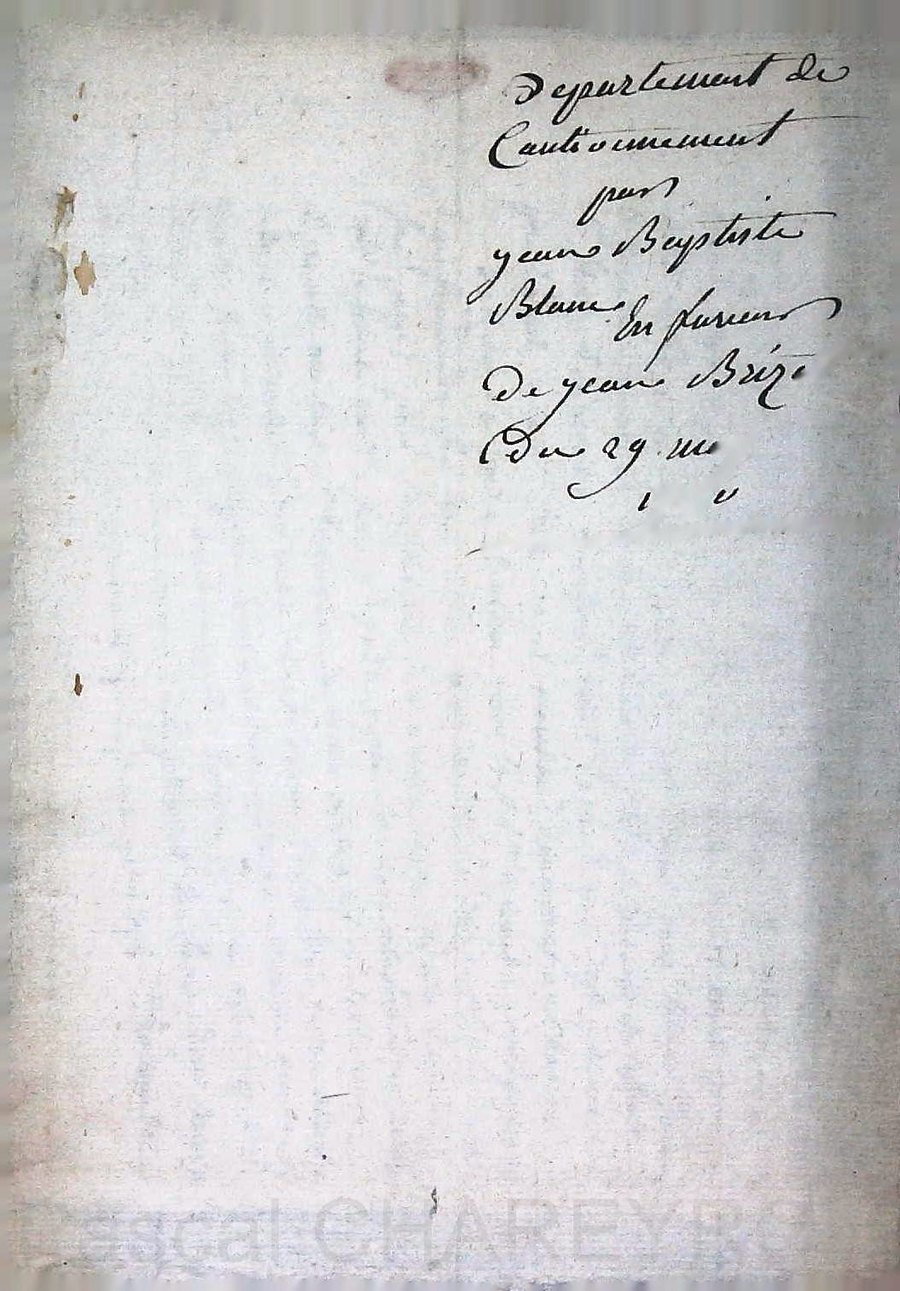 Departement de
Cautionnement
par
jean Baptiste
Blanc En faveur
De jean Brize
Du 29
Pascal CHAREYRE